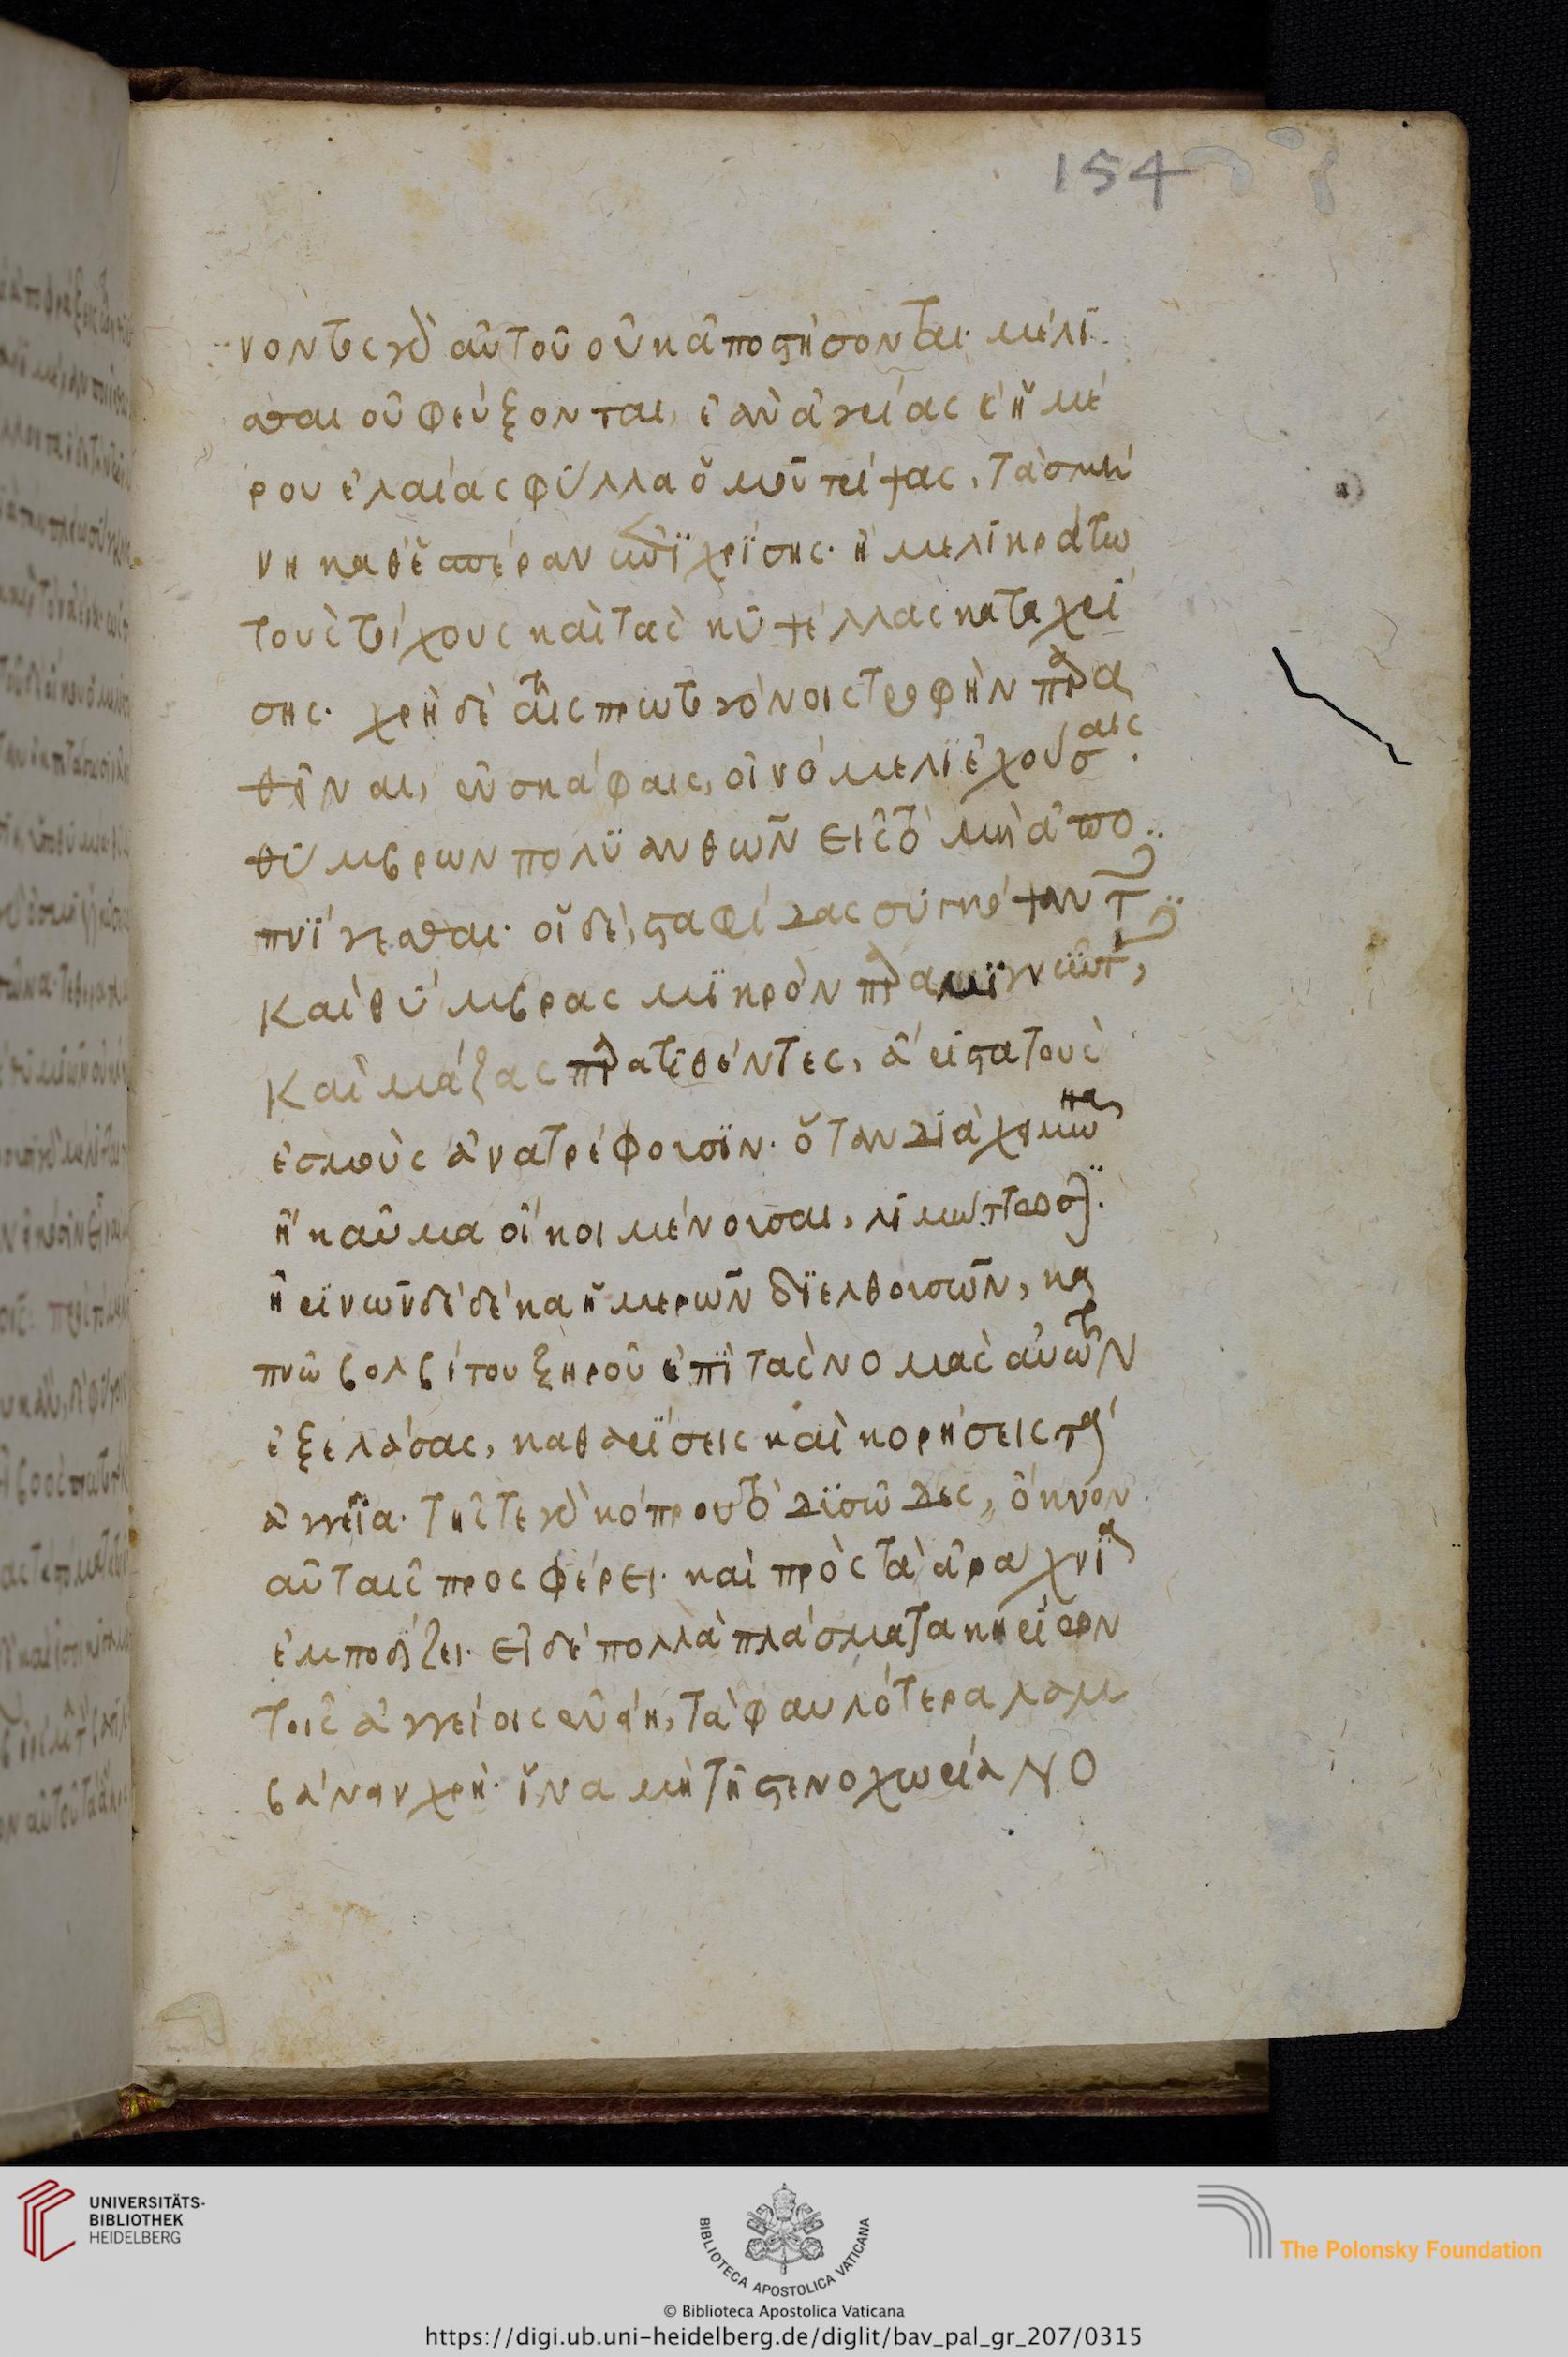 154
νοντες γὰρ αὐτοῦ οὐκ ἀποστήσονται· μέλισ
σαι οὐ φεύξονται, ἐὰν ἀγρίας ἐ ἡμέ
ρου ἐλαίας φύλλα ὁμοῦ τρίψας, τὰ σμή
νη καθ' ἑσπέραν ἐπιχρίσης· ἢ μελικράτω
τοὺς τοίχους καὶ τὰς κυψέλλας καταχρί
σης· χρὴ δὲ ταῖς πρωτογόνοις τροφὴν παρα
θεῖναι, ἐν σκάφαις, οἰνόμελι ἐχούσαις·
θύμβρων πολυανθῶν εἰς τὸ μὴ ἀπο
πνίγεσθαι· οἱ δὲ, σταφίδας συγκόψαντες
καὶ θύμβρας μικρὸν παραμιγνῦντες,
καὶ μάζας παρατιθέντες, ἄριστα τοὺς
ἐσμοὺς ἀνατρέφουσιν· ὅταν διὰ χειμῶνα
ἢ καῦμα οἴκοι μένουσαι,
ἡ ρινῶν δὲ δέκα ἡμερῶν διελθουσῶν, κα
πνῶ βολβίτου ξηροῦ ἐπὶ τὰς νομὰς αὐτῶν
ἐξελάσας, καθαρίσεις καὶ κορήσεις τὰ
ἀγγεῖα· τῆς τε γὰρ κόπρου τὸ δυσῶδες, ὄκνον
αὐταῖς προσφέρει· καὶ πρὸς τὰ ἀράχνια
ἐμποδίζει· εἰ δὲ πολλὰ πλάσματα κηρίων
τοῖς ἀγγείοις ἐνῆ, τὰ φαυλότερα λαμ
βάνειν χρή· ἵνα μὴ τῆ στενοχωρία νο
UNIVERSITÄTS-
BIBLIOTHEK
HEIDELBERG
BIBLIOTECA APOSTOLICA VATICANA
The Polonsky Foundation
© Biblioteca Apostolica Vaticana
https://digi.ub.uni-heidelberg.de/diglit/bav_pal_gr_207/0315